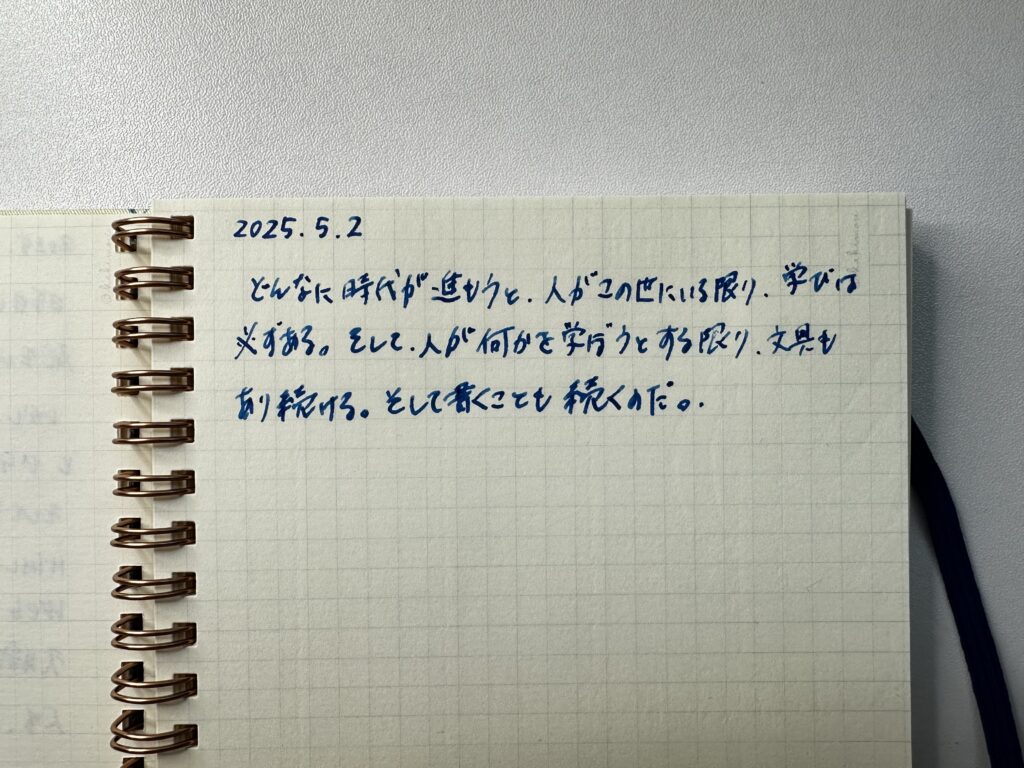 2025.5.2
どんなに時代が進もうと、人がこの世にいる限り、学びは
必ずある。そして、人が何かを学ぼうとする限り、文具も
あり続ける。そして書くことも続くのだ。